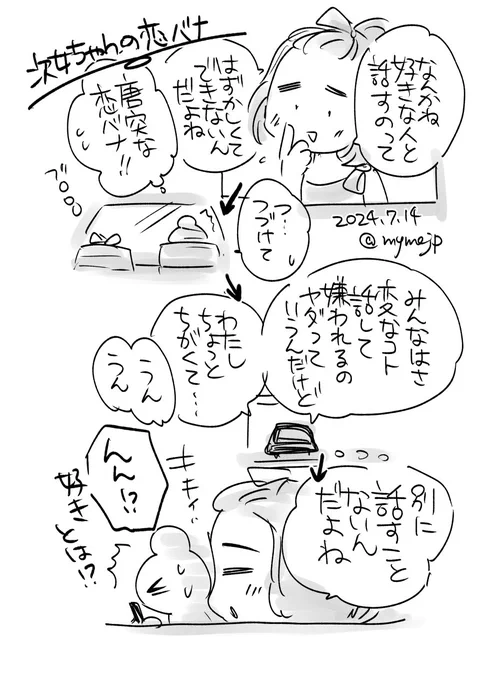 次女ちゃんの恋バナ
なんかね
好きな人と
話すのって
はずかしくて
できないん
だよね
唐突な
恋バナ!!
ブ〇〇〇
2024.7.14
@mymejp
つ…
つづけて
みんなはさ
変なコト
話して
嫌われるの
ヤダって
いうんだけど
わたし
ちょっと
ちがくて……
うん
うん
別に
話すこと
ないん
だよね
キキィィ
んん!?
好きとは!?